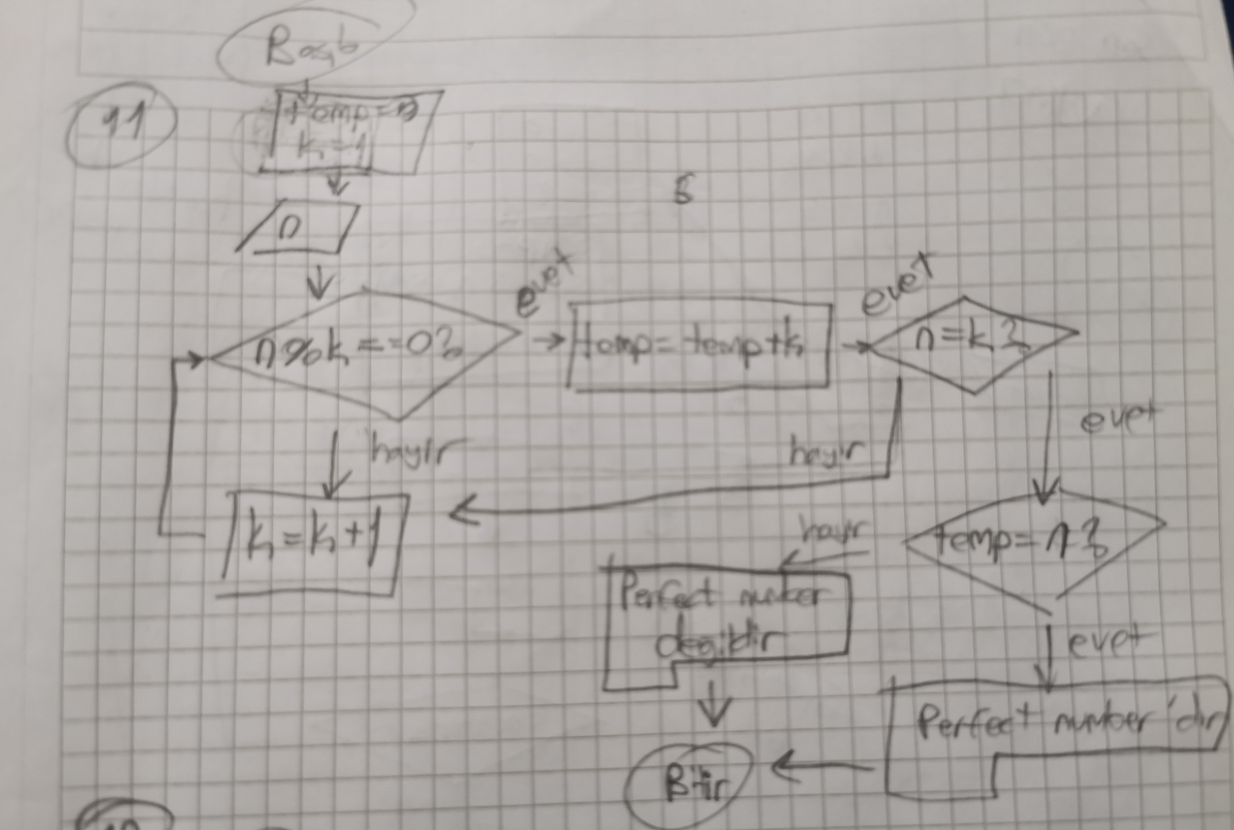 Başla
11
temp=0
k=1
n
5
n%k==0?
evet
temp=temp+k
evet
n=k?
hayır
hayır
evet
k=k+1
hayır
temp=n?
Perfect number
degildir
evet
Perfect number'dır
Bitir